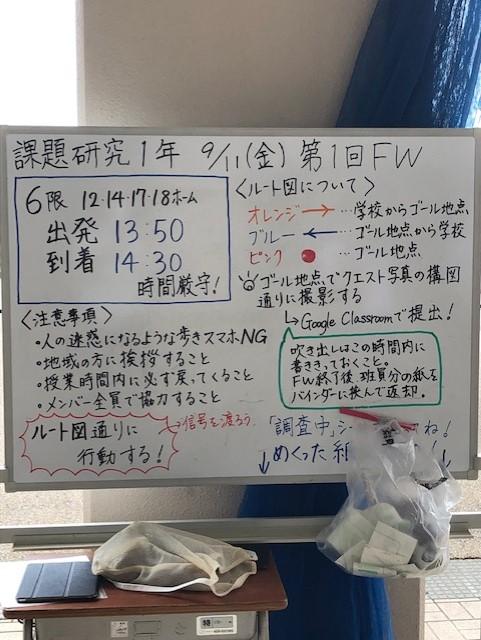 課題研究1年 9/11(金) 第1回FW
6限 12・14・17・18ホーム
出発 13:50
到着 14:30
時間厳守!
〈注意事項〉
・人の迷惑になるような歩きスマホNG
・地域の方に挨拶すること
・授業時間内に必ず戻ってくること
・メンバー全員で協力すること
ルート図通りに
行動する!
→信号を渡ろう
〈ルート図について〉
オレンジ → …学校からゴール地点
ブルー ← …ゴール地点から学校
ピンク ● …ゴール地点
ゴール地点でクエスト写真の構図
通りに撮影する
↳Google Classroomで提出!
吹き出しはこの時間内に
書ききっておくこと。
FW終了後、班員分の紙を
バインダーに挟んで返却。
「調査中」シ ね!
↓めくった紙 ↓